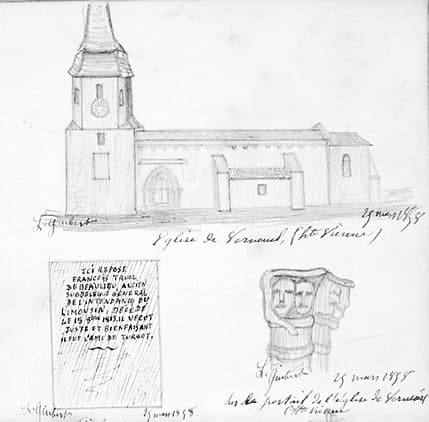 L. Guibert
29 mars 1898
Eglise de Verneuil, (Hte Vienne)
ICI REPOSE
FRANCOIS TRUOL
DE BEAULIEU, ANCIEN
SUBDELEGUE GENERAL
DE L'INTENDANCE DU
LIMOUSIN, DECEDE
LE 15
IL VECUT
JUSTE ET BIENFAISANT
IL FUT L'AMI DE TURGOT.
L. Guibert
29 mars 1898
L. Guibert
29 mars 1898
portail de l'eglise de Verneuil